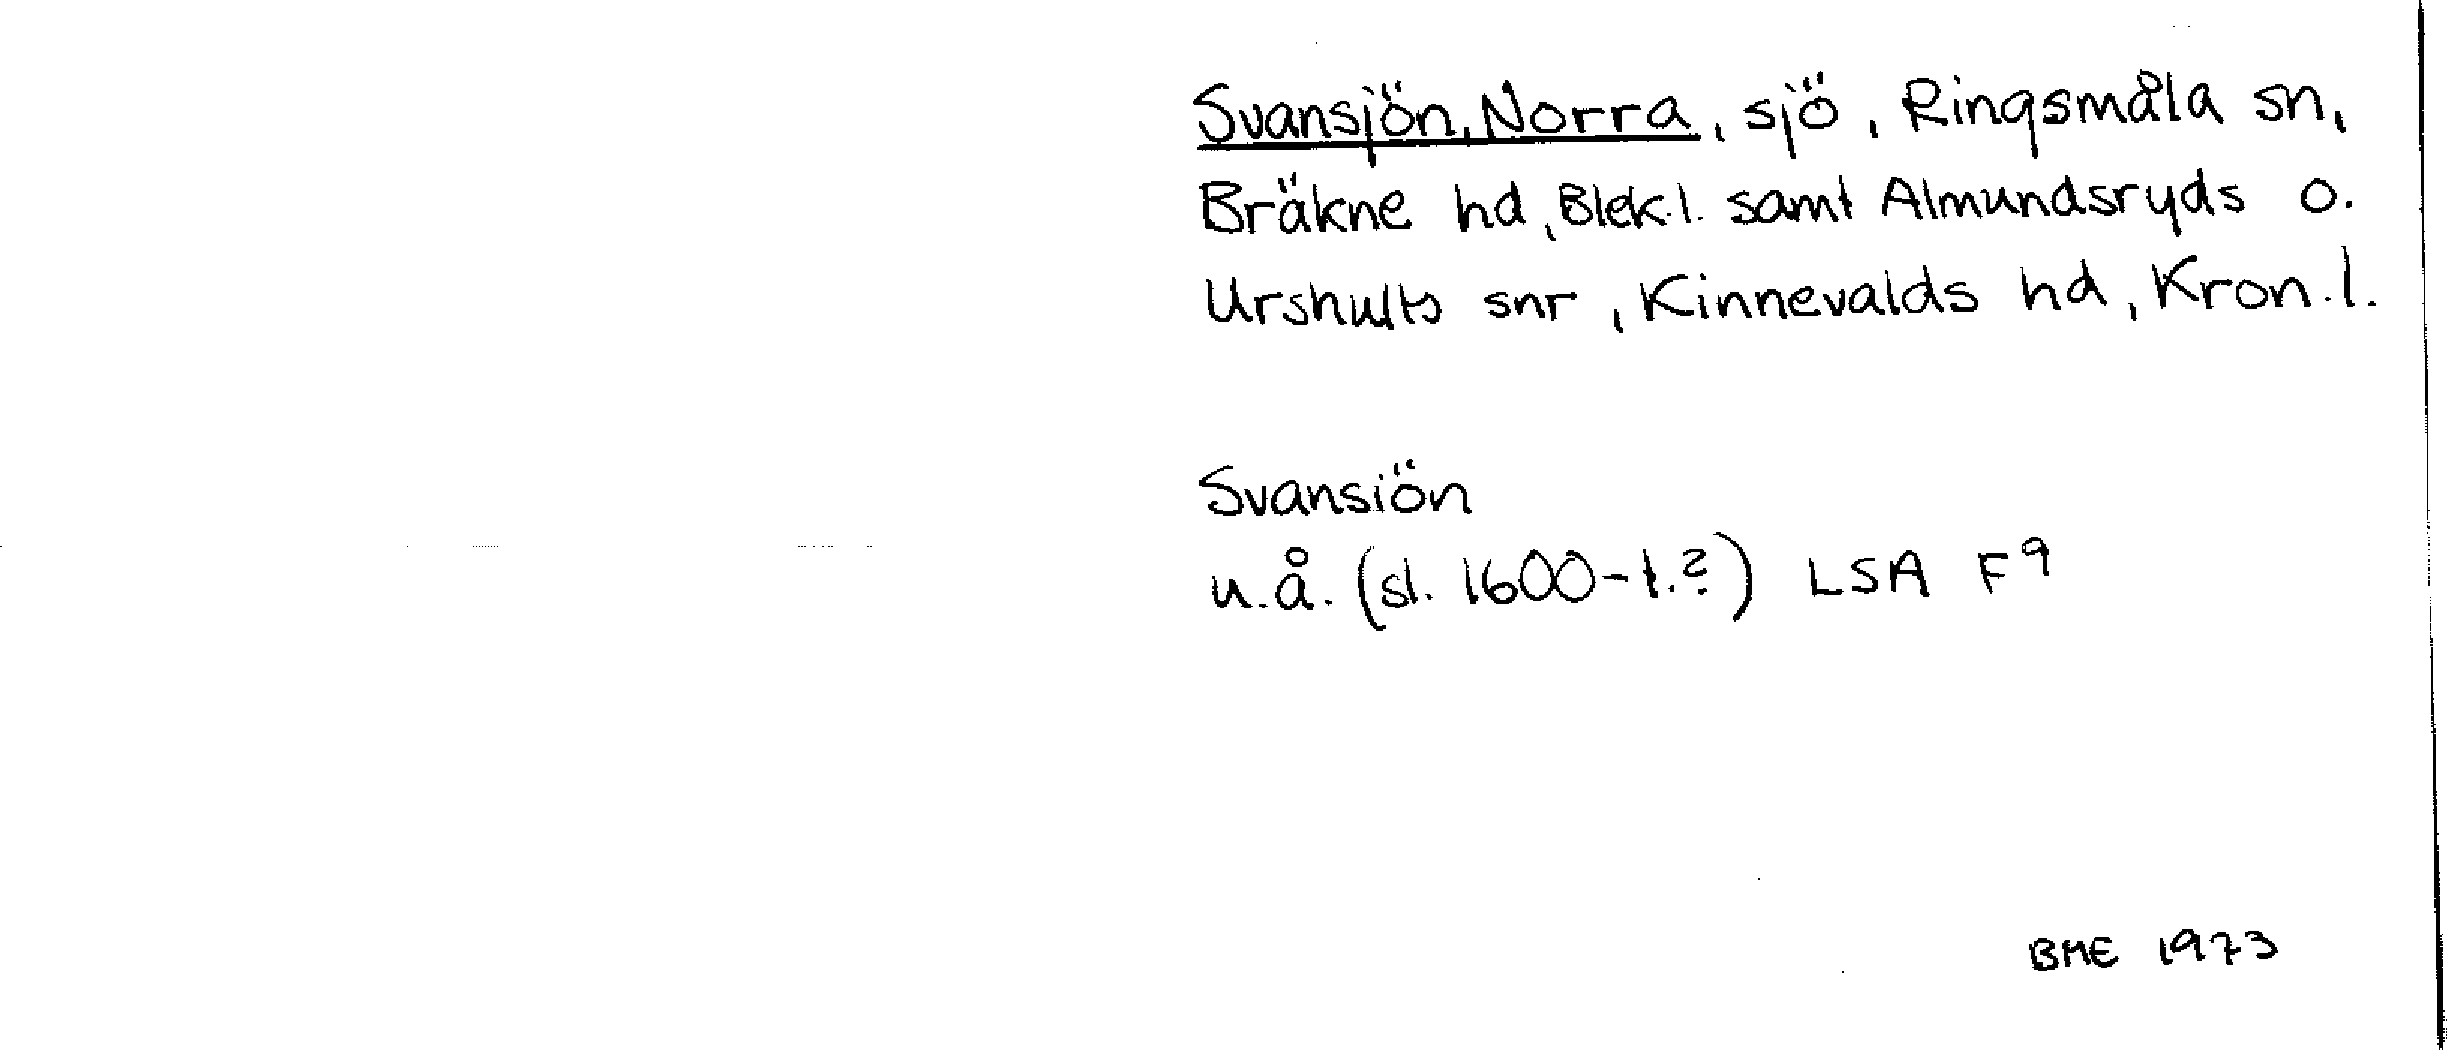 Svansjön, Norra, sjö, Ringsmåla sn,
Bräkne hd, Blek.l. samt Almundsryds o.
Urshults snr, Kinnevalds hd, Kron.l.
Svansiön
u.å. (sl. 1600-t.?) LSA F9
BME 1973